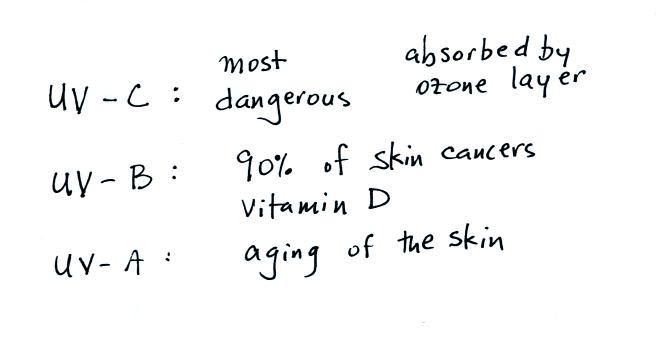 UV-C : most dangerous absorbed by ozone layer
UV-B : 90% of skin cancers
vitamin D
UV-A : aging of the skin